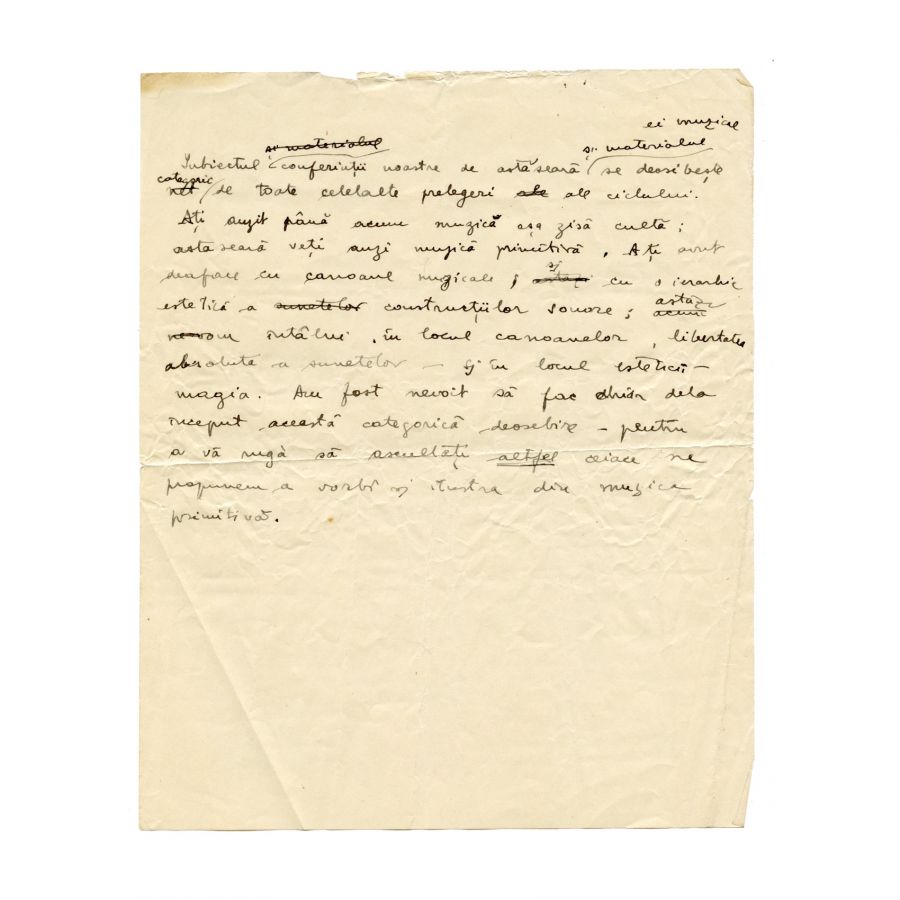 ei muzical
și materialul și materialul
Subiectul conferinții noastre de astăseară se deosibește
categoric
net de toate celelalte prelegeri ale ale ciclului.
Ați auzit până acum muzică așa zisă cultă;
astă seară veți auzi muzică primitivă. Ați avut
deaface cu canoane muzicale, și astazi cu o ierarhie
estetică a sunetelor construcțiilor sonore; astăzi
acum
vom întâlni, în locul canoanelor, libertatea
absoluta a sunetelor – și în locul esteticii –
magia. Am fost nevoit să fac chiar dela
inceput această categorică deosebire – pentru
a vă rugà să ascultați altfel ceiace ne
propunem a vorbi și ilustra din muzica
primitivă.